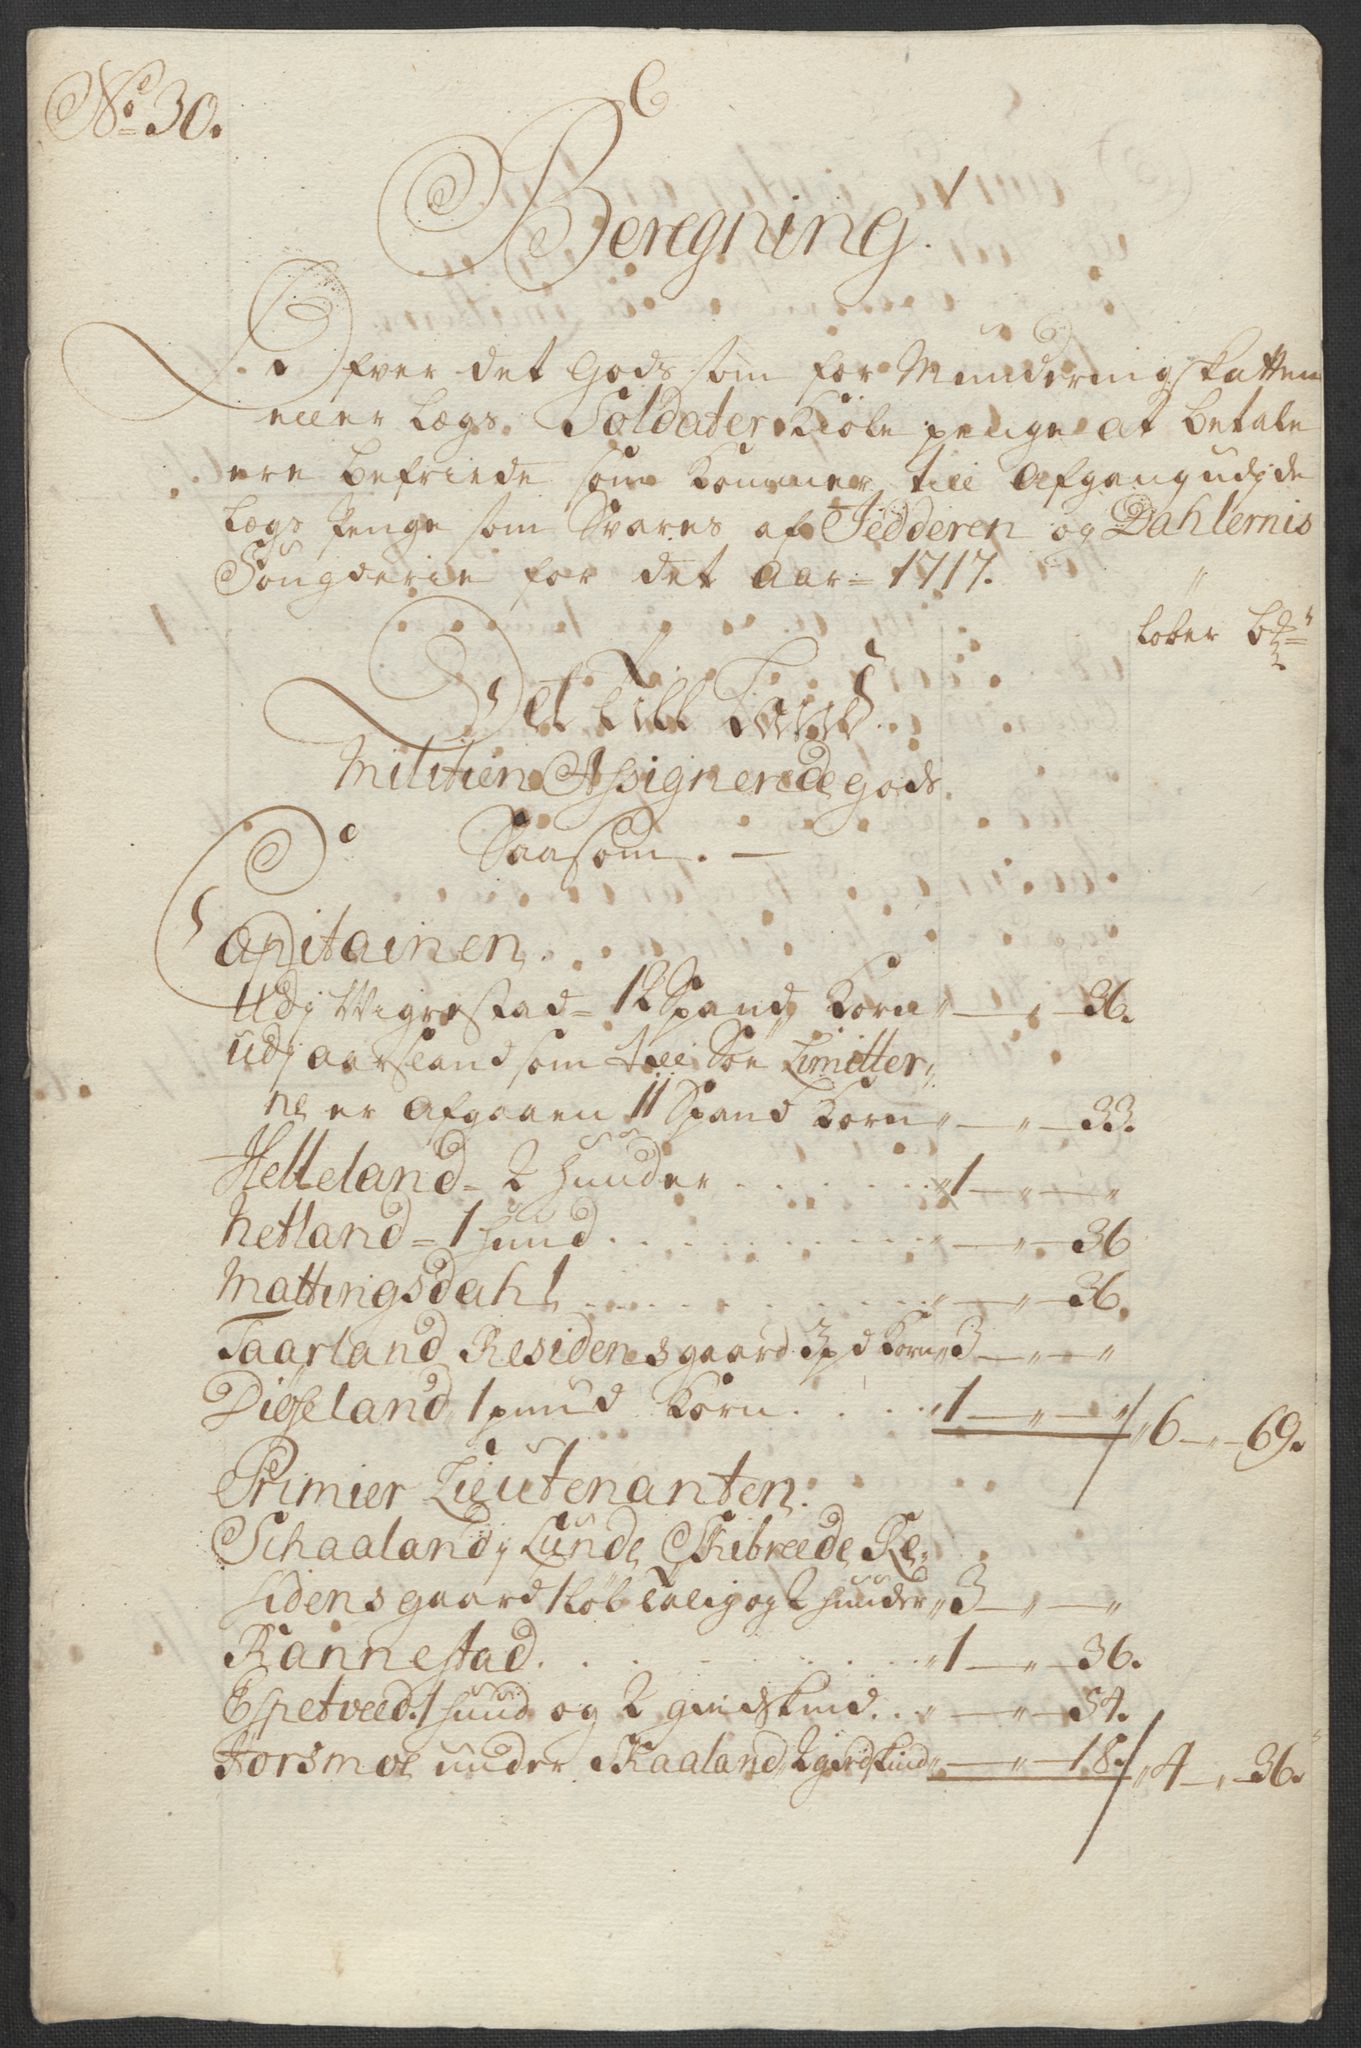 No 30.
Beregning
Ofver det Gods som for Munderingskatten
eller Legs Soldater Kiole penge at betale
ere befriede som kommer till Afgang udj de
Legs Penge som Svares af Jedderen og Dahlernis
Fougderie for det Aar 1717.
Løber
Det Till Land
Militien Assignerede gods
Saasom. —
Capitainen.
Udj Wigrestad - 12 Spand Korn " — " — 36.
udj Aarsland som till Søe Limitter„
ne er Afgaaen 11 Spand Korn " — " — 33.
Helleland - 2 huuder . . . . . " 1 — " — "
Netland - 1 huud . . . . . " — " — 36
Mattingsdahl . . . . . " — " — 36.
Taarland Residens gaard 3 pd Korn " 3 — " — "
Diøseland 1 pund Korn . . . . " 1 — " — " / " 6 — " — 69.
Primier Lieutenanten.
Schaaland j Lunde Skibreede Re„
sidens gaard 1 løb talig og 2 huuder " 3 — " — "
Rannestad . . . . . " 1 — " — 36.
Espetveed. 1 huud og 2 giedskind . . " — " — 54.
Forsmoe under Skaaland 2 giedskind " — " — 18. / " 4 — " — 36.